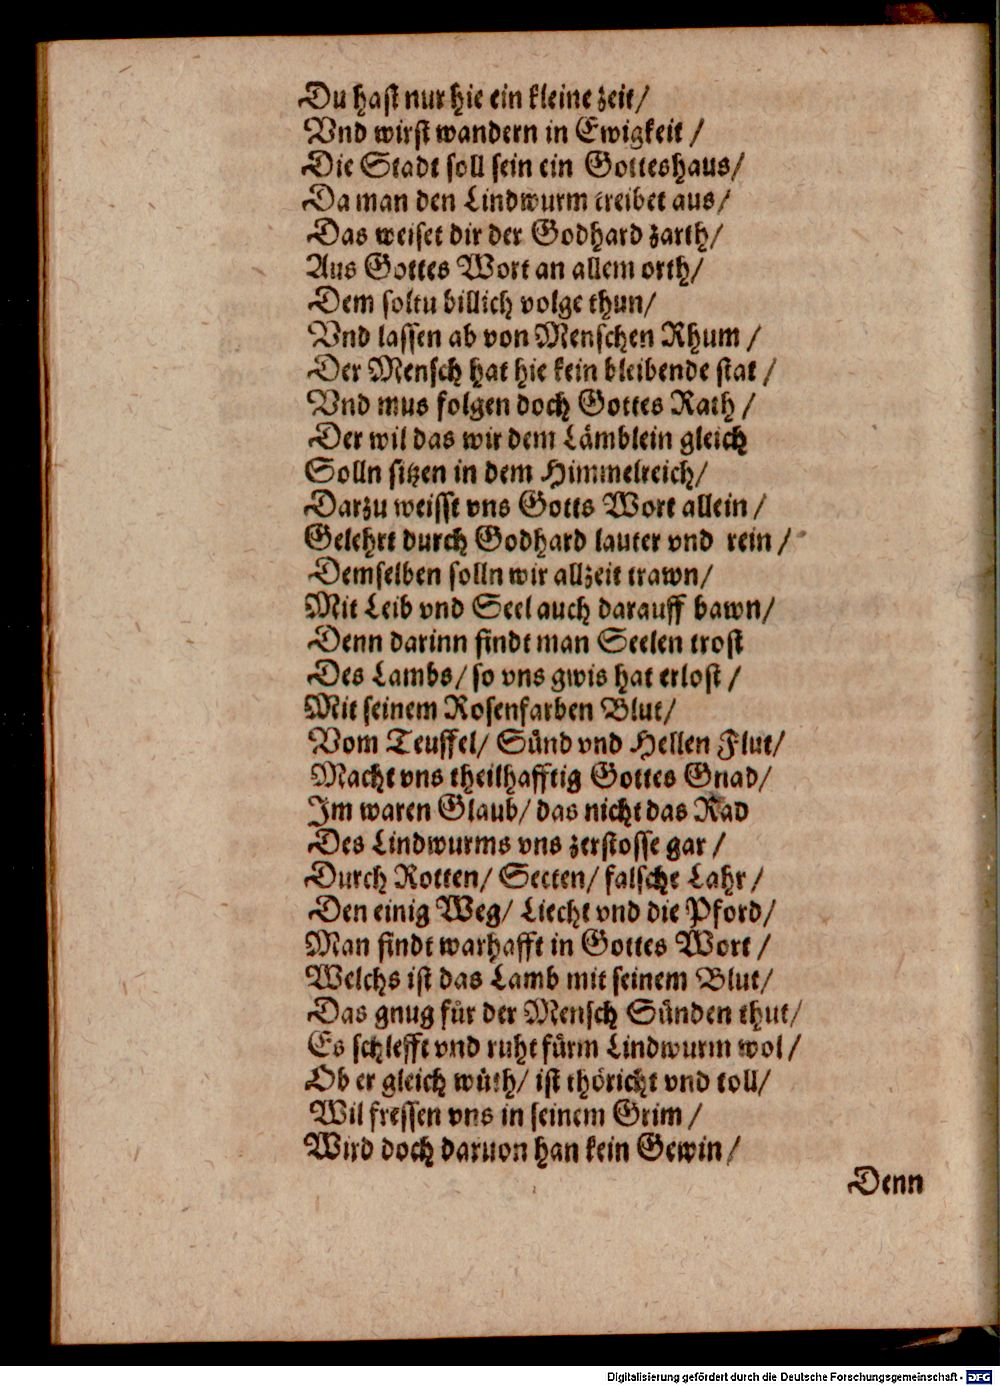 Du hast nur hie ein kleine zeit/
Vnd wirst wandern in Ewigkeit /
Die Stadt soll sein ein Gotteshaus/
Da man den Lindwurm treibet aus/
Das weiset dir der Godhard zarth/
Aus Gottes Wort an allem orth/
Dem soltu billich volge thun/
Vnd lassen ab von Menschen Rhum /
Der Mensch hat hie kein bleibende stat /
Vnd mus folgen doch Gottes Rath /
Der wil das wir dem Lämblein gleich
Solln sitzen in dem Himmelreich/
Darzu weisst vns Gotts Wort allein /
Gelehrt durch Godhard lauter vnd rein /
Demselben solln wir allzeit trawn/
Mit Leib vnd Seel auch darauff bawn/
Denn darinn findt man Seelen trost
Des Lambs/ so vns gwis hat erlost /
Mit seinem Rosenfarben Blut/
Vom Teuffel/ Sünd vnd Hellen Flut/
Macht vns theilhafftig Gottes Gnad/
Im waren Glaub/ das nicht das Rad
Des Lindwurms vns zerstosse gar /
Durch Rotten/ Secten/ falsche Lahr /
Den einig Weg/ Liecht vnd die Pford/
Man findt warhafft in Gottes Wort /
Welchs ist das Lamb mit seinem Blut/
Das gnug für der Mensch Sünden thut/
Es schlefft vnd ruht fürm Lindwurm wol /
Ob er gleich wüth/ ist thöricht vnd toll/
Wil fressen vns in seinem Grim /
Wird doch daruon han kein Gewin /
Denn
Digitalisierung gefördert durch die Deutsche Forschungsgemeinschaft - DFG